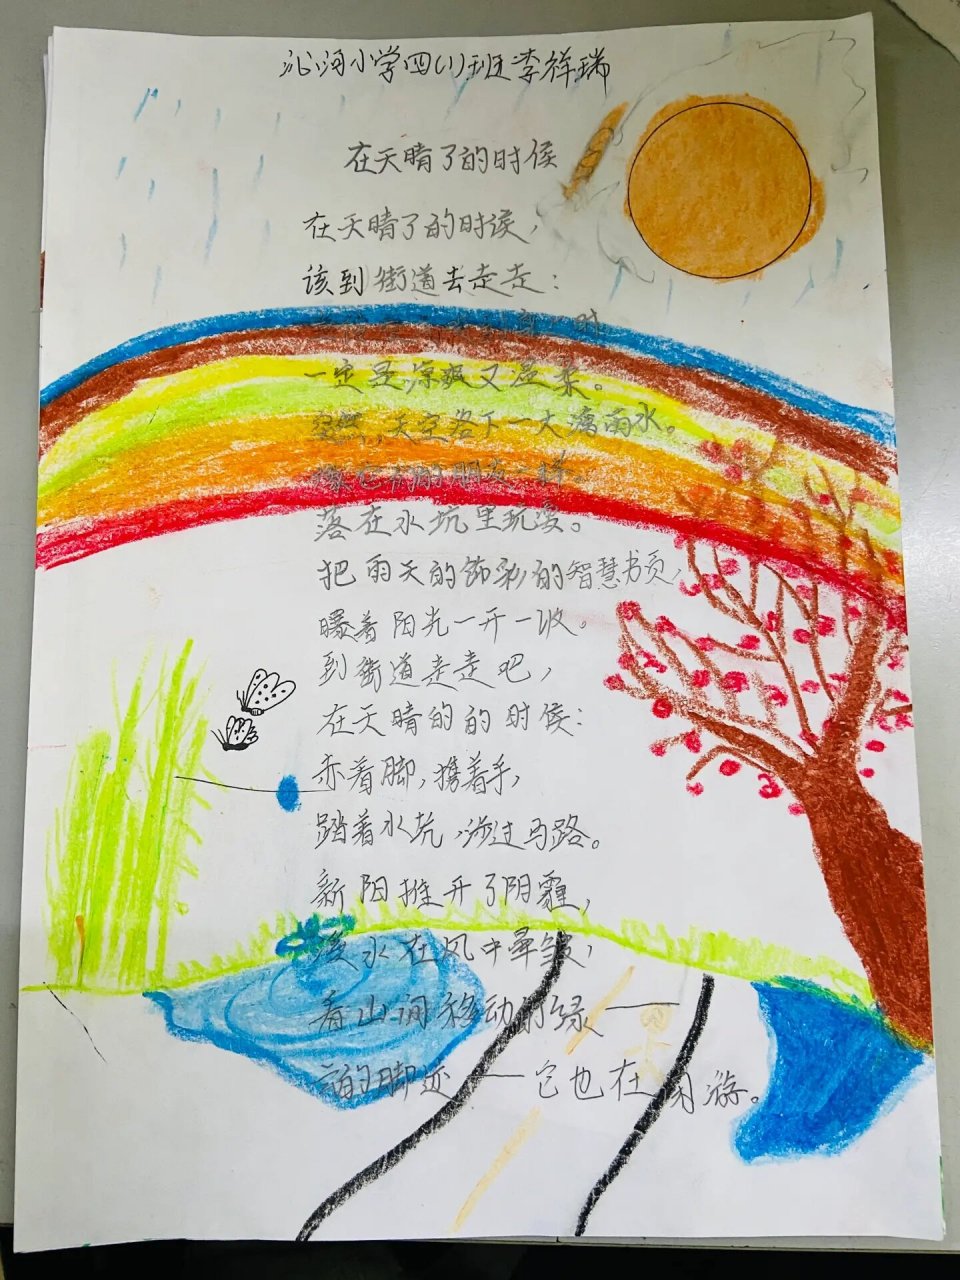 沁河小学四(1)班李祥瑞
在天晴了的时候
在天晴了的时候，
该到街道去走走：
一定是凉爽又温柔。
突然，天空落下一大滴雨水。
像它和朋友一样。
落在水坑里玩耍。
把雨天的缤彩的智慧书页，
曝着阳光一开一收。
到街道走走吧，
在天晴的的时候：
赤着脚，携着手，
踏着水坑，涉过马路。
新阳推开了阴霾，
溪水在风中晕皱，
看山间移动的绿——
的脚迹——它也在闲游。